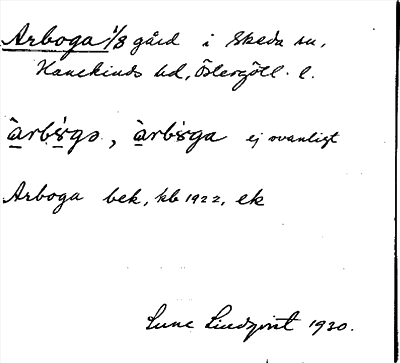 Arboga 1/8 gård i Skeda sn,
Hanekinds hd, Östergötl. l.
àrbσgə, àrbσga ej ovanligt
Arboga bek, kb 1922, ek
Sune Lindqvist 1930.